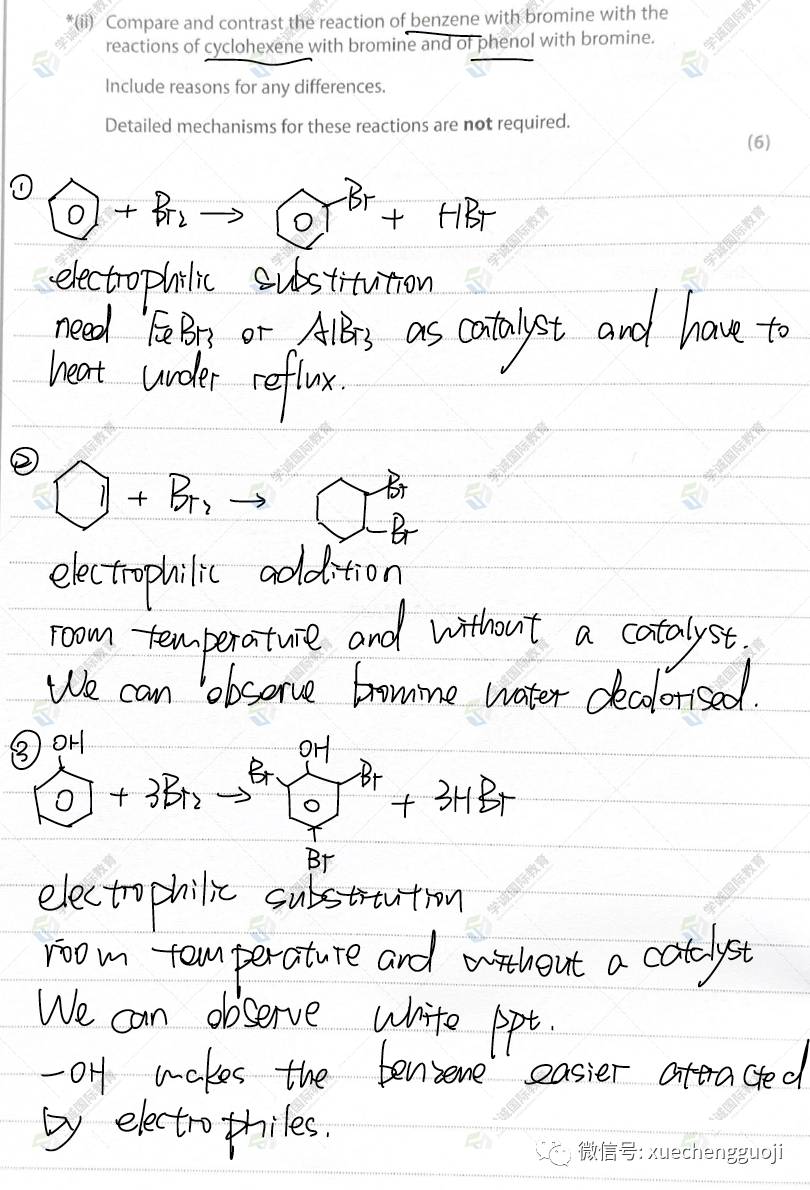 *(ii) Compare and contrast the reaction of benzene with bromine with the
reactions of cyclohexene with bromine and of phenol with bromine.
Include reasons for any differences.
Detailed mechanisms for these reactions are not required.
(6)
① + Br₂ → Br + HBr
electrophilic substitution
need FeBr₃ or AlBr₃ as catalyst and have to
heat under reflux.
② + Br₂ → Br
Br
electrophilic addition
room temperature and without a catalyst.
We can observe bromine water decolorised.
③ OH
+ 3Br₂ → Br OH Br + 3HBr
Br
electrophilic substitution
room temperature and without a catalyst
We can observe white ppt.
-OH makes the benzene easier attracted
by electrophiles.
微信号: xuechengguoji
学诚国际教育